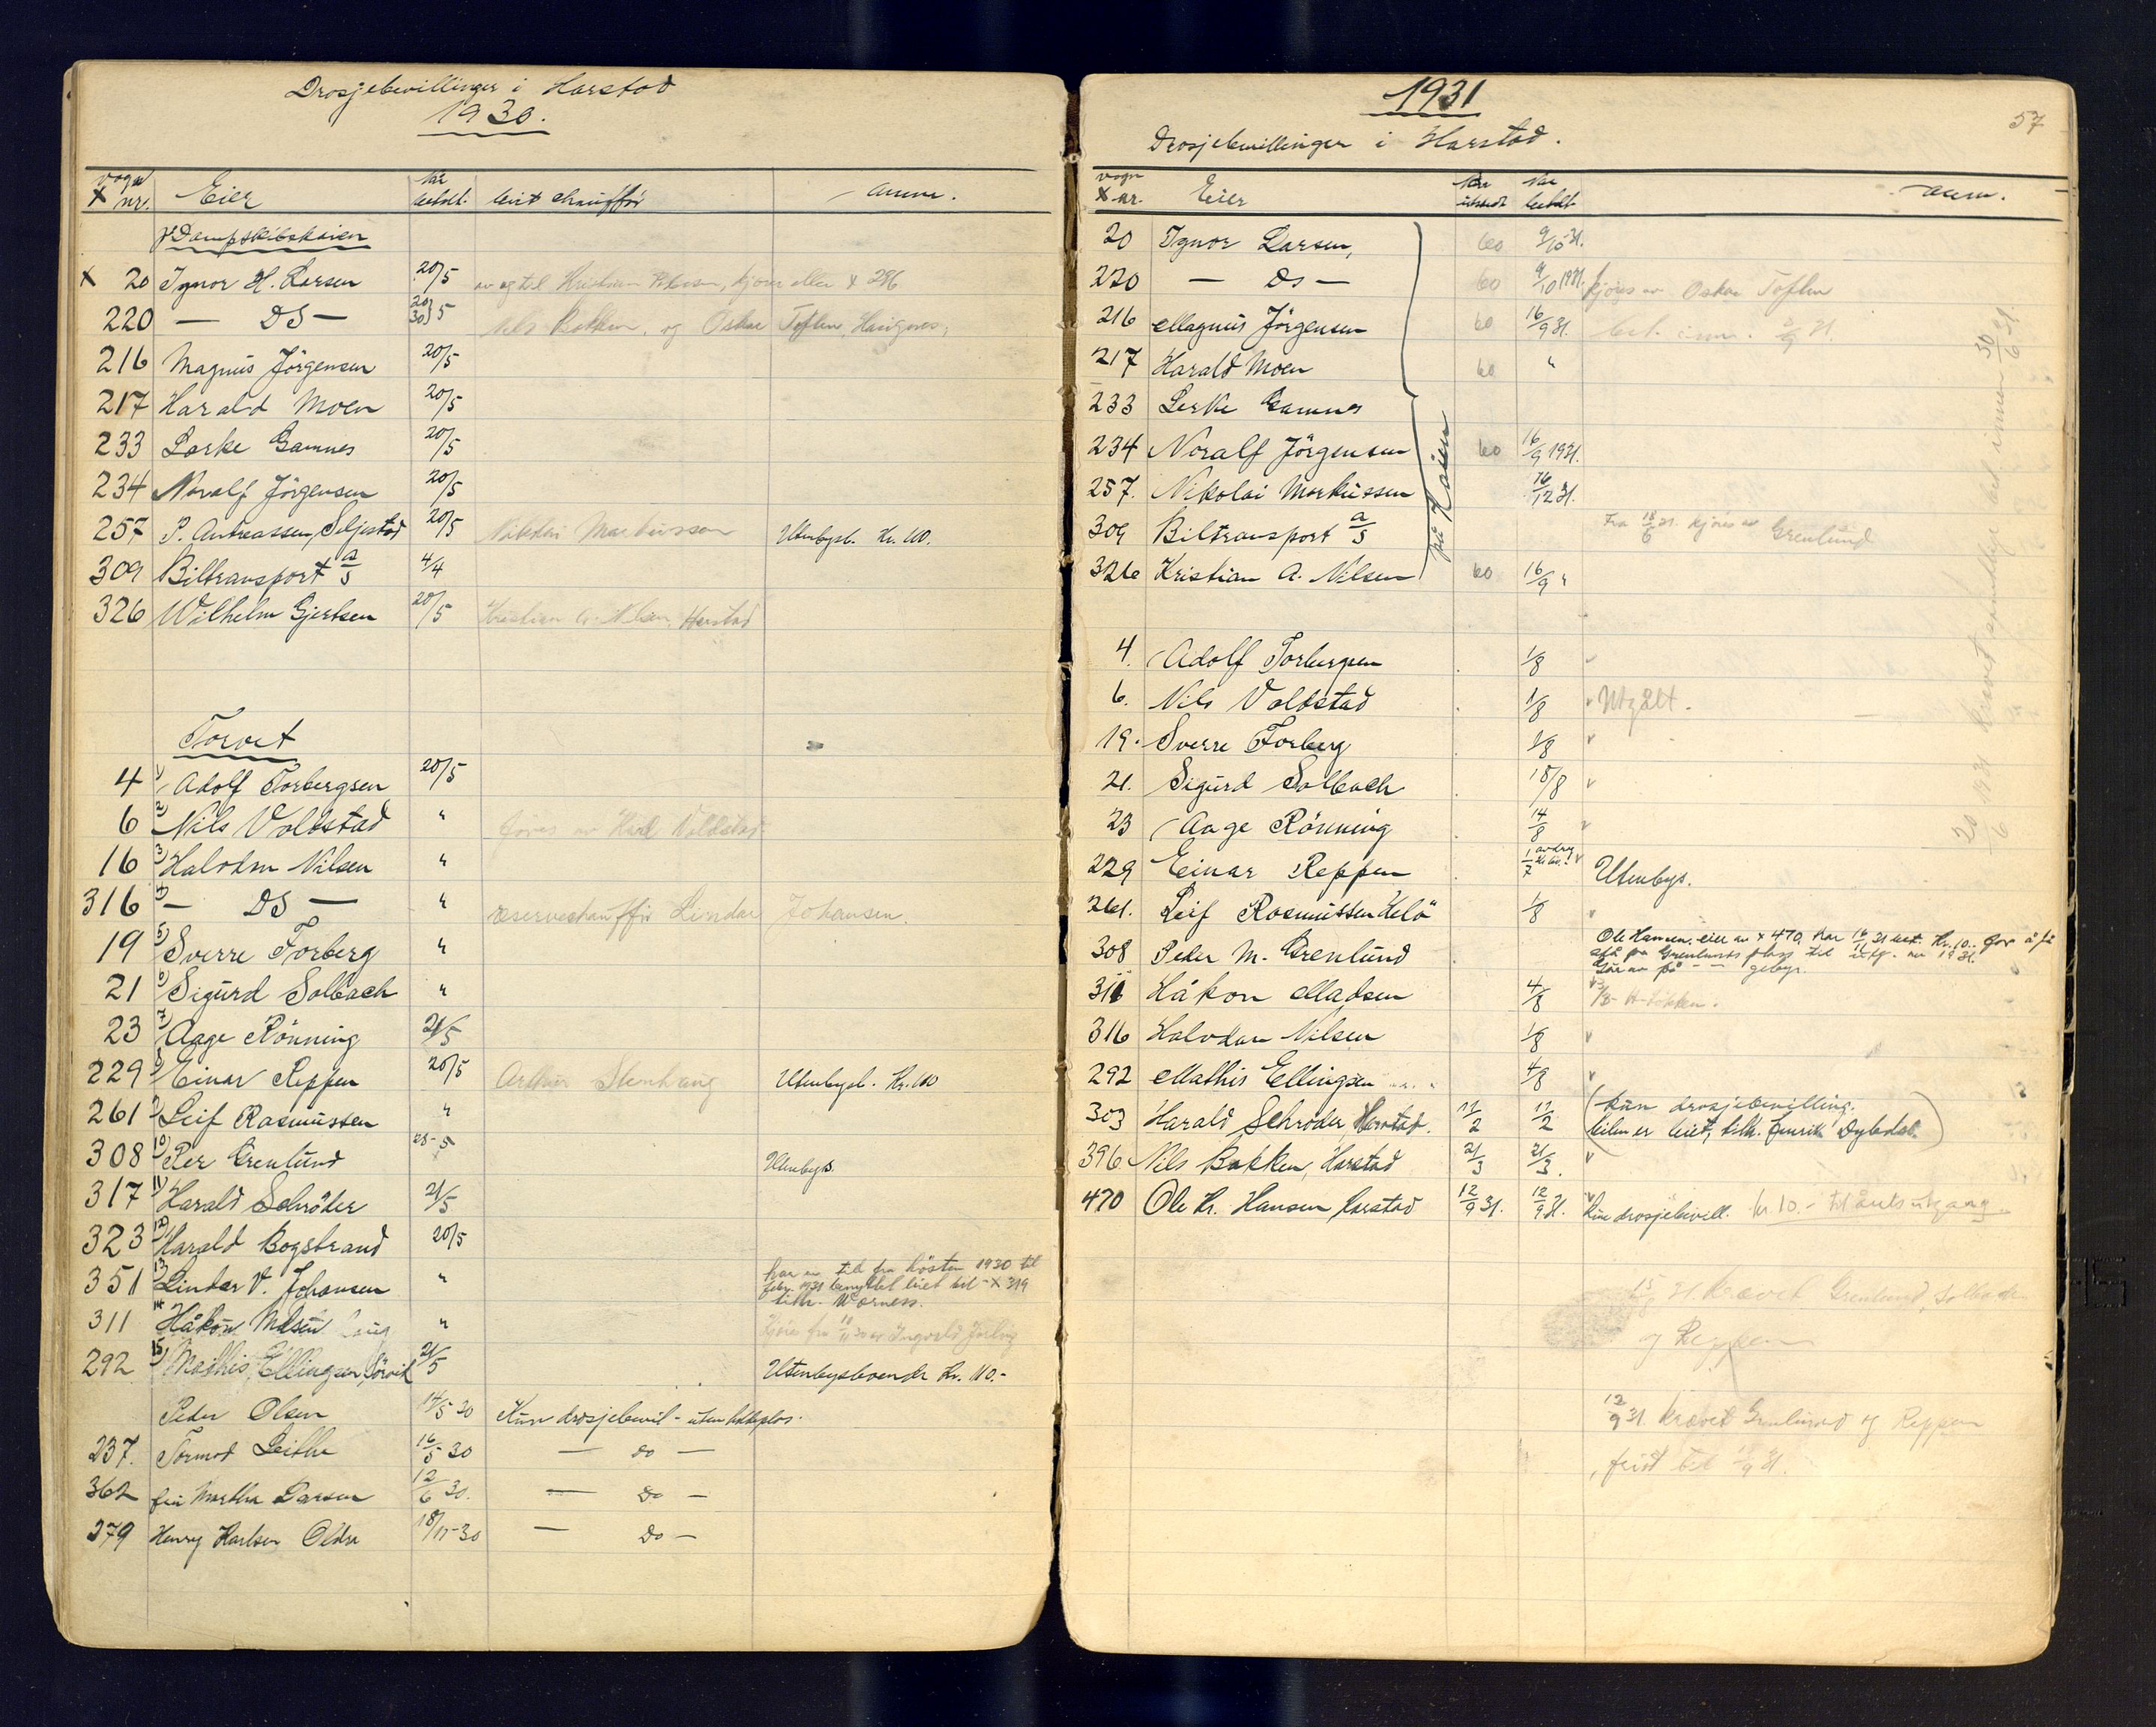 Drosjebevillinger i Harstad
1930.
vogn X nr. Eier Når betalt. leiet chauffør Anm.
på Dampskibskaien
X 20 Ignor H. Larsen 20/5 av og til Kristian kjører eller X 286
220 — DS — 20/5 30/5 Nils Bakken, og Oskar Toften,
216 Magnus Jörgensen 20/5
217 Harald Moen 20/5
233 Lerke Gamnes 20/5
234 Noralf Jörgensen 20/5
257 P. Andreassen, Seljestad 20/5 Nikolai Markussen Utenbysb. Kr. 110.
309 Biltransport a/s 4/4
326 Wilhelm Gjertsen 20/5 Kristian A. Nilsen, Harstad
Torvet
4 1) Adolf Torbergsen 20/5
6 2) Nils Voldstad " av Voldstad
16 3) Halvdan Nilsen "
316 4) — DS — " reservechauffør Lindar Johansen.
19 5) Sverre Forberg "
21 6) Sigurd Solbach "
23 7) Aage Rönning 21/5
229 8) Einar Reppen 20/5 Arthur Stenhaug Utenbysb. Kr. 110
261 9) Leif Rasmussen "
308 10) Per Grenlund 28-5 Utenbys.
317 11) Harald Schröder 21/5
323 12) Harald Bogstrand 20/5
351 13) Lindar V. Johansen " har en tid fra hösten 1930 til
febr. 1931 benyttet leiet bil - X 319
tilh.
311 14 Håkon Madsen " Kjöres fra 10/11 30 av Ingvald
292 15) Mathis Ellingsen, Sörvik 21/5 Utenbysboende Kr. 110.-
Peder Olsen 14/5 30 Kun drosjebevil - uten holdeplas.
237. Tormod Leithe 16/5 30 — do —
362 fru Martha Larsen 12/6 30. — Do —
279 Henry Karlsen Oldra 18/11-30 — Do —
1931
57
Drosjebevillinger i Harstad.
vogn X nr. Eier Når utstedt Når betalt. Anm.
20 Ignor Larsen, 60 9/10-31.
220 — Ds — 60 9/10 1931. kjöres av Oskar Toften
216 Magnus Jörgensen 60 16/9 31.
217 Harald Moen 60 "
233 Lerke Gamnes
234 Noralf Jörgensen 60 16/9 1931.
257. Nikolai Markussen 16/12 31.
309 Biltransport a/s Fra 18/6 31. kjöres av Grenlund
326 Kristian A. Nilsen 60 16/9 "
på Kaien
4. Adolf Torbergsen 1/8
6. Nils Voldstad 1/8
19. Sverre Forberg 1/8
21. Sigurd Solbach 18/8
23 Aage Rönning 14/8
229 Einar Reppen 1/7 Utenbys.
261. Leif Rasmussen Helö 1/8
308 Peder M. Grenlund Ole Hansen, eier av X 470, har 16/11 31 bet. Kr. 10.- for å få
stå på Grenlunds plass til utg. av 1931.
gebyr.
311 Håkon Madsen 4/8
316 Halvdan Nilsen 1/8
292 Mathis Ellingsen 4/8
303 Harald Schröder, Harstad. 11/2 11/2 (kun drosjebevilling.
bilen er leiet, tilh. Henrik Dybdal.)
396 Nils Bakken, Harstad 21/3 21/3.
470 Ole Kr. Hansen, Harstad 12/9 31. 12/9 31. Kun drosjebevill. kr. 10.- til årets utgang.
15/8 31 krævet Grenlund, Solbach
og Reppen
12/9 31. krævet Grenlund og Reppen
, frist til
20/6 1931 krævet samtlige bet. innen 30/6 31.